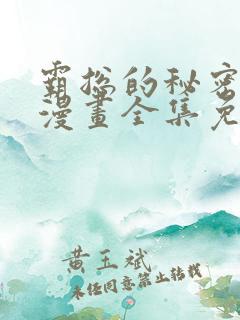 霸总的秘密
漫畫全集免
黄玉斌
未经同意禁止转载